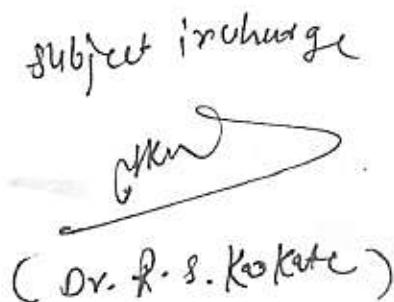 subject incharge
(Dr. R. S. Kaokate)